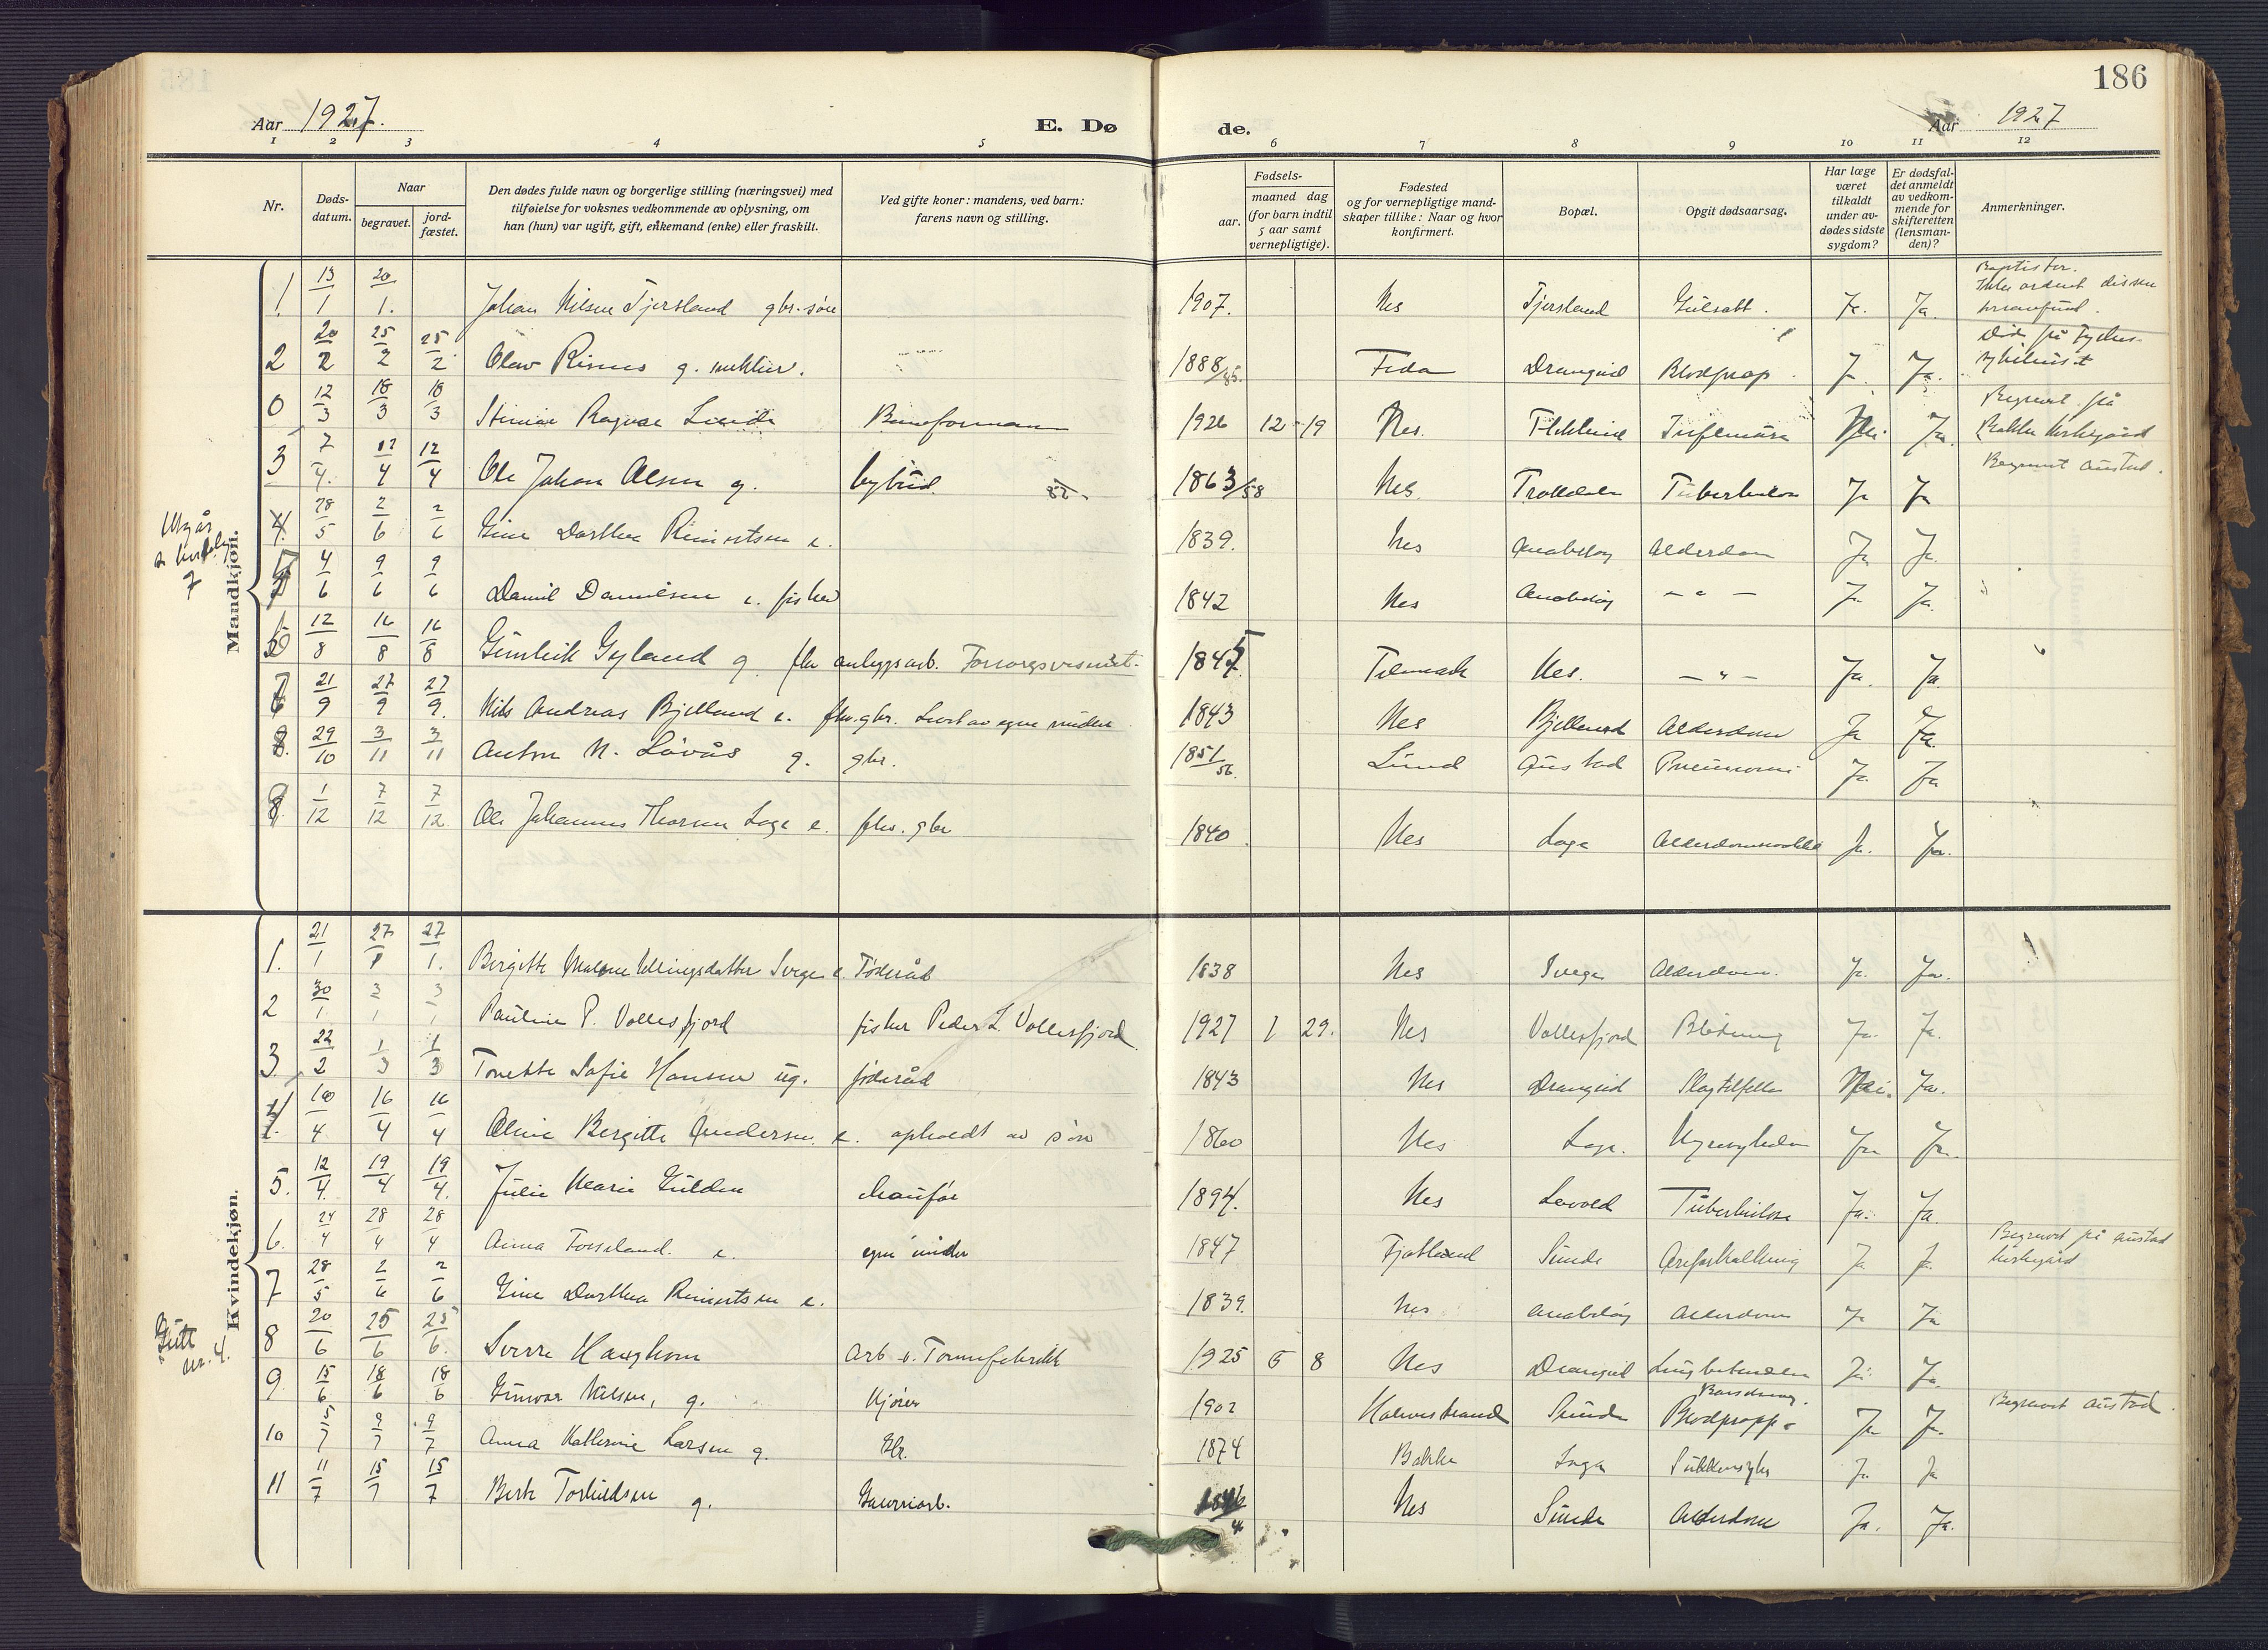 186
Aar 1927. E. Dø de. Aar 1927
1 2 3 4 5 6 7 8 9 10 11 12
Nr. Dødsdatum. Naar begravet. jordfæstet. Den dødes fulde navn og borgerlige stilling (næringsvei) med tilføielse for voksnes vedkommende av oplysning, om han (hun) var ugift, gift, enkemand (enke) eller fraskilt. Ved gifte koner: mandens, ved barn: farens navn og stilling. Fødsels- aar. maaned dag (for barn indtil 5 aar samt vernepligtige). Fødested og for vernepligtige mandskaper tillike: Naar og hvor konfirmert. Bopæl. Opgit dødsaarsag. Har læge været tilkaldt under avdødes sidste sygdom? Er dødsfaldet anmeldt av vedkommende for skifteretten (lensmanden)? Anmerkninger.
Mandkjøn.
1. 13/1 20/1. Johan Nilsen Tjersland gbr. søn 1907. Nes Tjersland Gulsott. Ja. Ja. Baptister.
2 20/2 25/2 25/2 Olav Risnes g. 1888/85. Feda Drangeid Blodprop. Ja Ja. Døde på
0 12/3 18/3 18/3 Lunde Baneformann 1926 12 19 Nes. Nei Ja. Begravet på Bakke kirkegård
3 7/4. 12/4 12/4 Ole Johan Olsen g. bybud. 1863/58 Nes. Tuberkulose Ja Ja Begravet Austad.
Utgår
4 28/5 2/6 2/6 Gine Dorthea Reinertsen e. 1839. Nes Anabeløy Alderdom Ja Ja.
4/6 9/6 9/6 Daniel Danielsen e. fisker 1842 Nes Anabeløy - " - Ja. Ja.
12/8 16/8 16/8 Gunleik Gyland g. fhv anleggsarb. Forsorgsvesenet. 1845 Telemark Nes. - " - Ja. Ja.
21/9 27/9 27/9. Nils Andreas Bjelland e. fhv. gbr. Levet av egne midler 1843 Nes Bjelland Alderdom Ja Ja.
29/10 3/11 3/11 Anton N. Løvås g. gbr. 1851/56. Lund Austad Pneumoni Ja Ja
8 1/12 7/12 7/12 Ole Johannes Thorsen Loge e. fhv. gbr 1840 Nes Loge Ja. Ja.
Kvindekjøn.
1. 21/1 27/1 27/1. Birgitte Malene Ellingsdatter Svege e. Føderåd 1838 Nes Svege Alderdom. Ja. Ja.
2 30/1. 3 3 Pauline P. Vollesfjord fisker Peder L. Vollesfjord 1927 1 29. Nes Vollesfjord Blødning Ja. Ja.
3. 22/2 1/3 1/3 Tonette Sofie Hansen ug. føderåd 1843 Nes Drangeid Slagtilfelle Nei. Ja.
4. 10/4 16/4 16/4 Oline Bergitte Andersen e. opholdt av søn 1860 Nes Loge. Nyresykdom Ja Ja.
5. 12/4. 19/4 19/4. Julie Marie Gulden 1894. Nes Tuberkulose Ja. Ja.
6. 24/4 28/4 28/4 Anna Forsland. e. egne midler 1847 Fjotland Sunde Åreforkalkning Ja Ja. Begravet på Austad kirkegård
7 28/5 2/6 2/6 Gine Dorthea Reinertsen e. 1839. Nes Anabeløy Alderdom Ja Ja
Gutt nr. 4.
8 20/6 25/6 25/6. Sverre Haughom Arb. v. Tønnefabrikk 1925 5 8 Nes Drangeid Lungbetendelse Ja Ja.
9. 15/6 18/6 18/6 Gunvor Nilsen, g. Kjører 1902 Holmestrand Sunde Barselseng. Blodpropp Ja Ja. Begravet Austad.
10 5/7 9/7 9/7 Anna Katherine Larsen g. Gbr. 1874 Bakke Loga Sukkersyke Ja Ja
11 11/7 15/7 15/7 Berte Torkildsen g. Garveriarb. Nes Sunde Alderdom Ja. Ja.